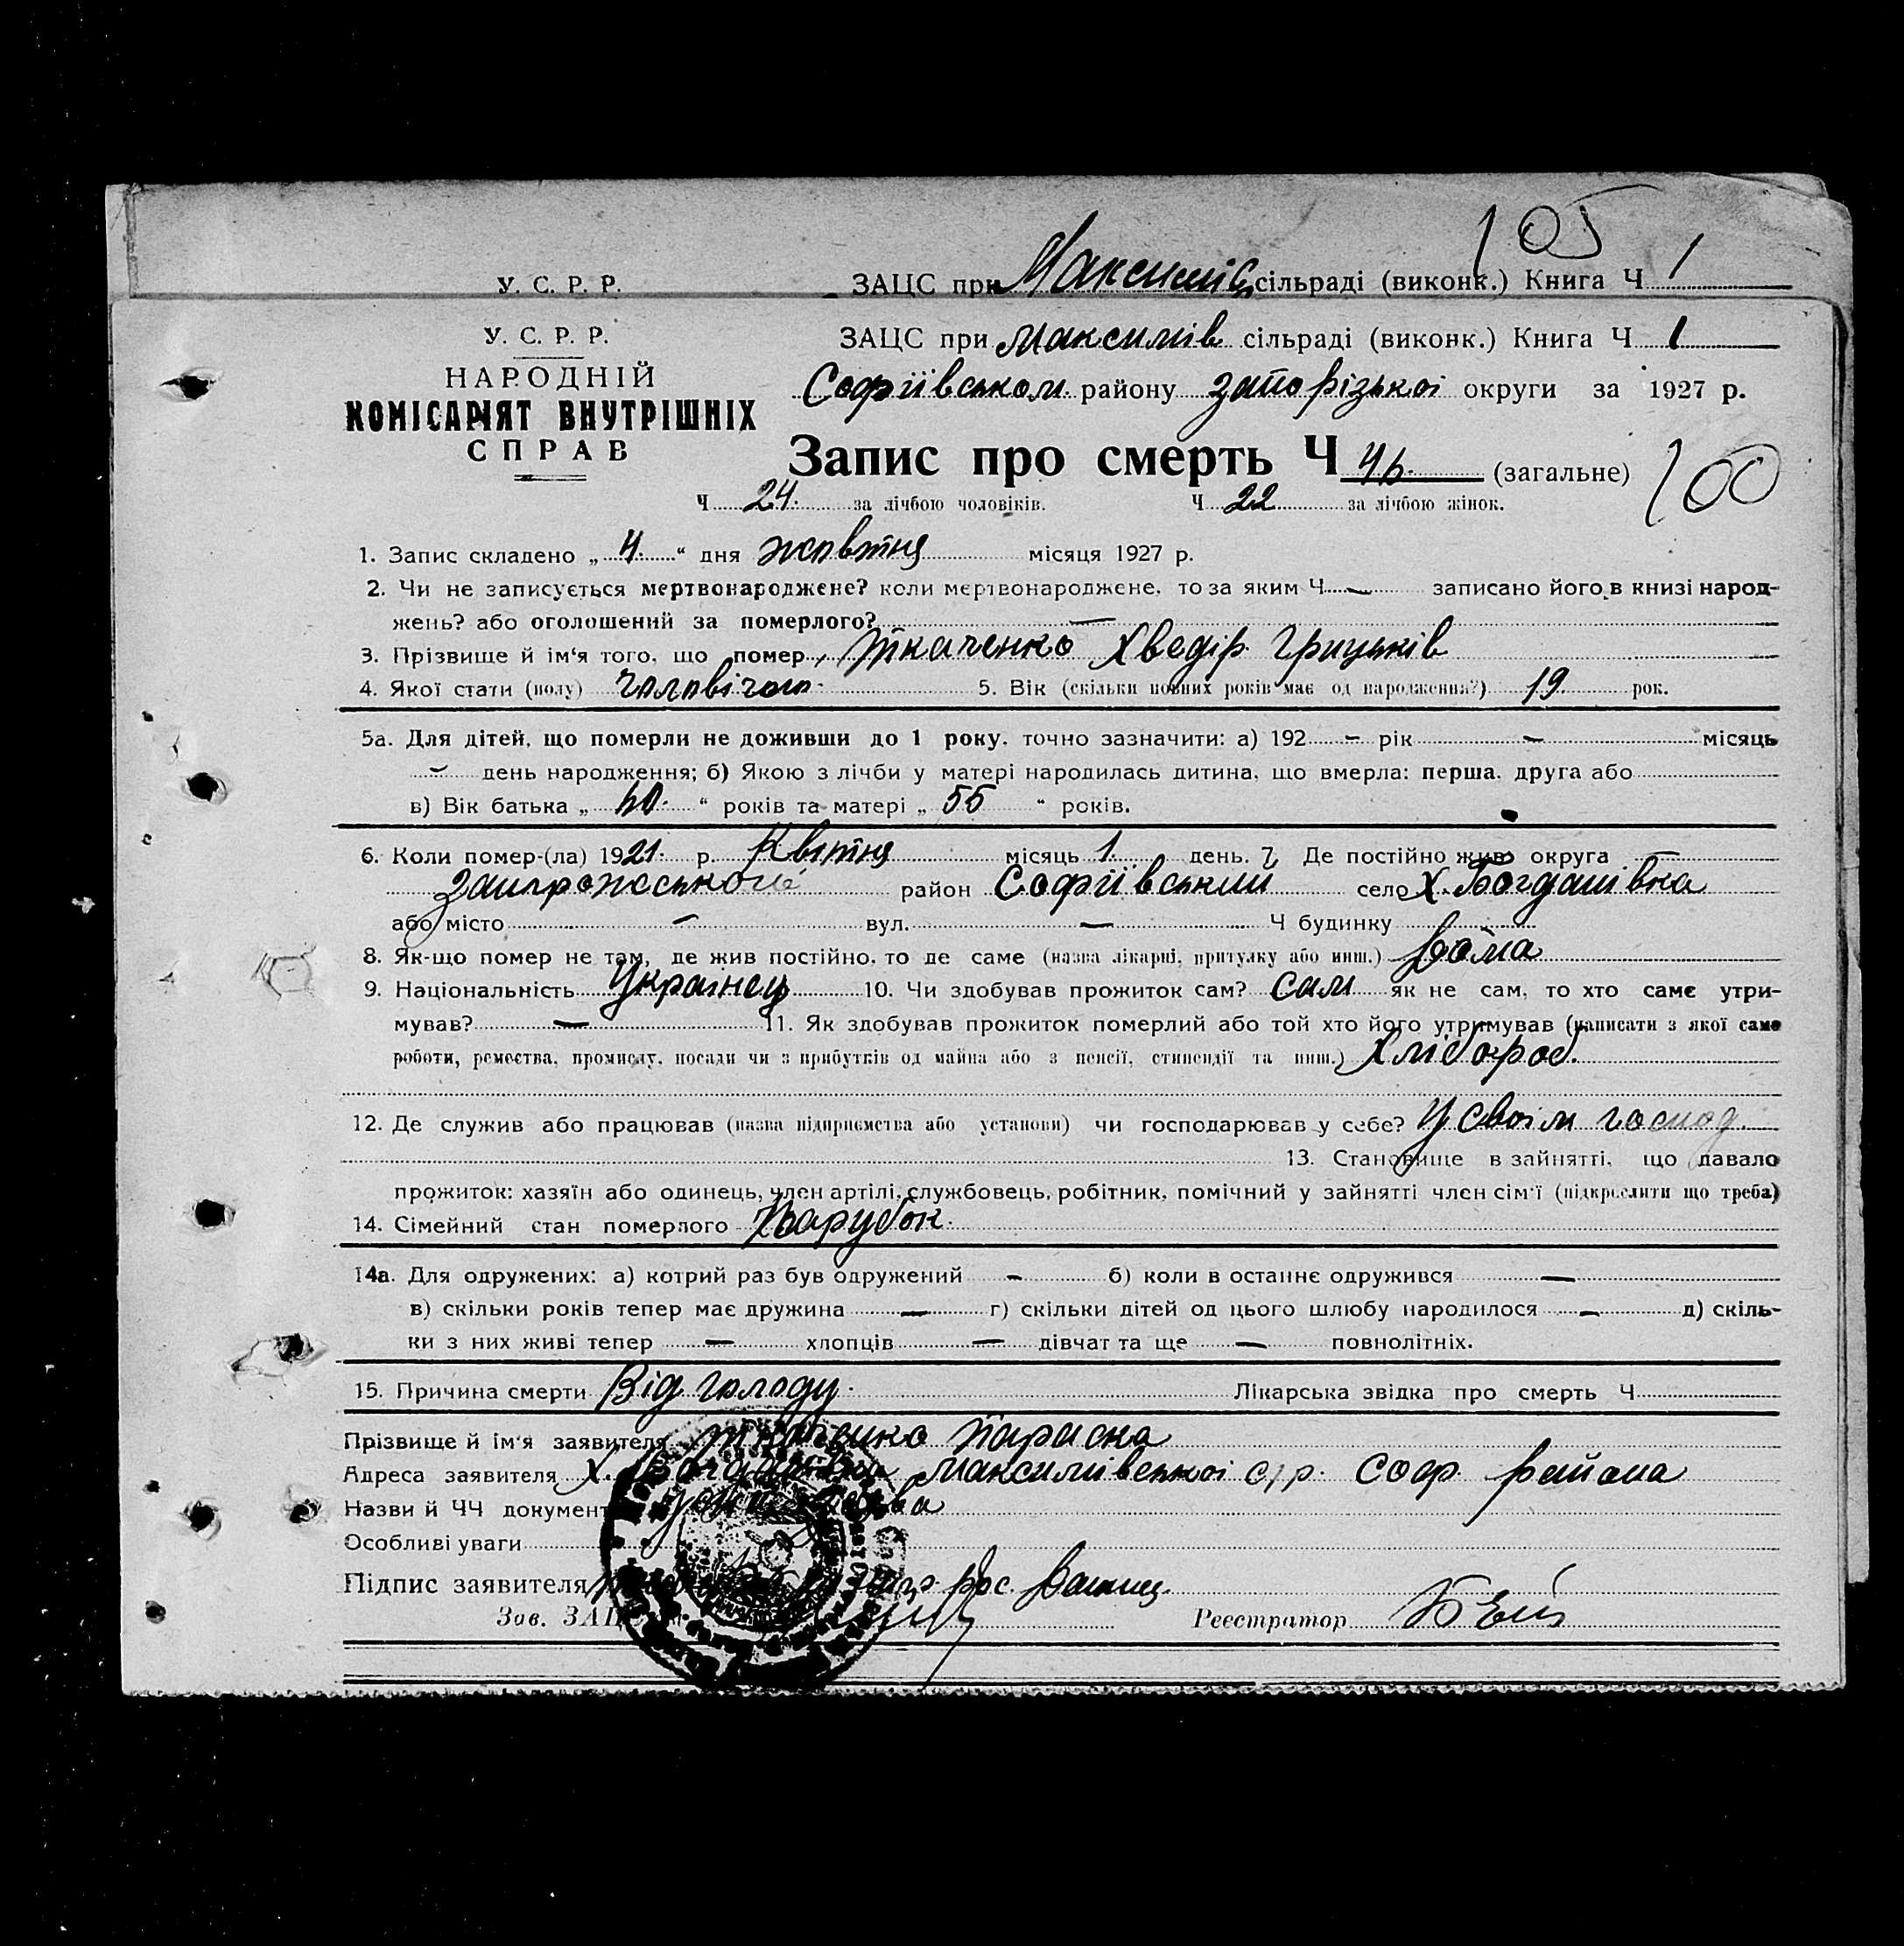 105
У. С. Р. Р. ЗАЦС при Максимів сільраді (виконк.) Книга Ч 1
У. С. Р. Р. ЗАЦС при Максимів сільраді (виконк.) Книга Ч 1
НАРОДНІЙ Софіївськом району запорізької округи за 1927 р.
КОМІСАРІЯТ ВНУТРІШНІХ
СПРАВ
Запис про смерть Ч 46. (загальне) 100
Ч 24. за лічбою чоловіків. Ч 22 за лічбою жінок.
1. Запис складено „ 4. “ дня жовтня місяця 1927 р.
2. Чи не записується мертвонароджене? коли мертвонароджене, то за яким Ч — записано його в книзі народ-
жень? або оголошений за померлого? —
3. Прізвище й ім'я того, що помер, Ткаченко Хведір Грицьків
4. Якої стати (полу) чоловічої. 5. Вік (скільки повних років має од народження?) 19 рок.
5а. Для дітей, що померли не доживши до 1 року, точно зазначити: а) 192 – рік – місяць
– день народження; б) Якою з лічби у матері народилась дитина, що вмерла: перша, друга або
в) Вік батька „ “ років та матері „ 55 “ років.
6. Коли помер-(ла) 1921. р. Квітня місяць 1. день. 7. Де постійно жив: округа
район Софіївський село х. Богданівка
або місто – вул. — Ч будинку
8. Як-що помер не там, де жив постійно, то де саме (назва лікарні, притулку або инш.) Дома
9. Національність Українец 10. Чи здобував прожиток сам? Сам як не сам, то хто саме утри-
мував? — 11. Як здобував прожиток померлий або той хто його утримував (написати з якої саме
роботи, ремества, промислу, посади чи з прибутків од майна або з пенсії, стипендії та инш.) Хлібороб.
12. Де служив або працював (назва підприємства або установи) чи господарював у себе? У своїм господ.
13. Становище в зайнятті, що давало
прожиток: хазяїн або одинець, член артілі, службовець, робітник, помічний у зайнятті член сім'ї (підкреслити що треба)
14. Сімейний стан померлого Парубок.
14а. Для одружених: а) котрий раз був одружений – б) коли в останнє одружився —
в) скільки років тепер має дружина — г) скільки дітей од цього шлюбу народилося – д) скіль-
ки з них живі тепер — хлопців — дівчат та ще — повнолітніх.
15. Причина смерти Від голоду. Лікарська звідка про смерть Ч
Прізвище й ім'я заявителя Ткаченко Параска
Адреса заявителя х. Богданівка Максимівської с/р. Соф. района
Назви й ЧЧ документ
Особливі уваги
Підпис заявителя
Зав. ЗАЦС Реестратор